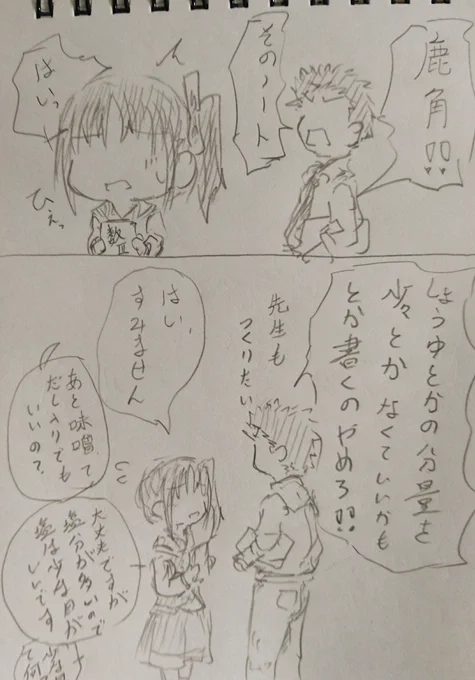 鹿角!!
そのノート
はいっ
ひぇっ
数Ⅱ
しょうゆとかの分量を
少々とかなくていいかも
とか書くのやめろ!!
先生も
つくりたい
はい、
すみません
あと味噌て
だし入りでも
いいの?
大丈夫ですが
塩分が多いので
塩は少な目が
いいです